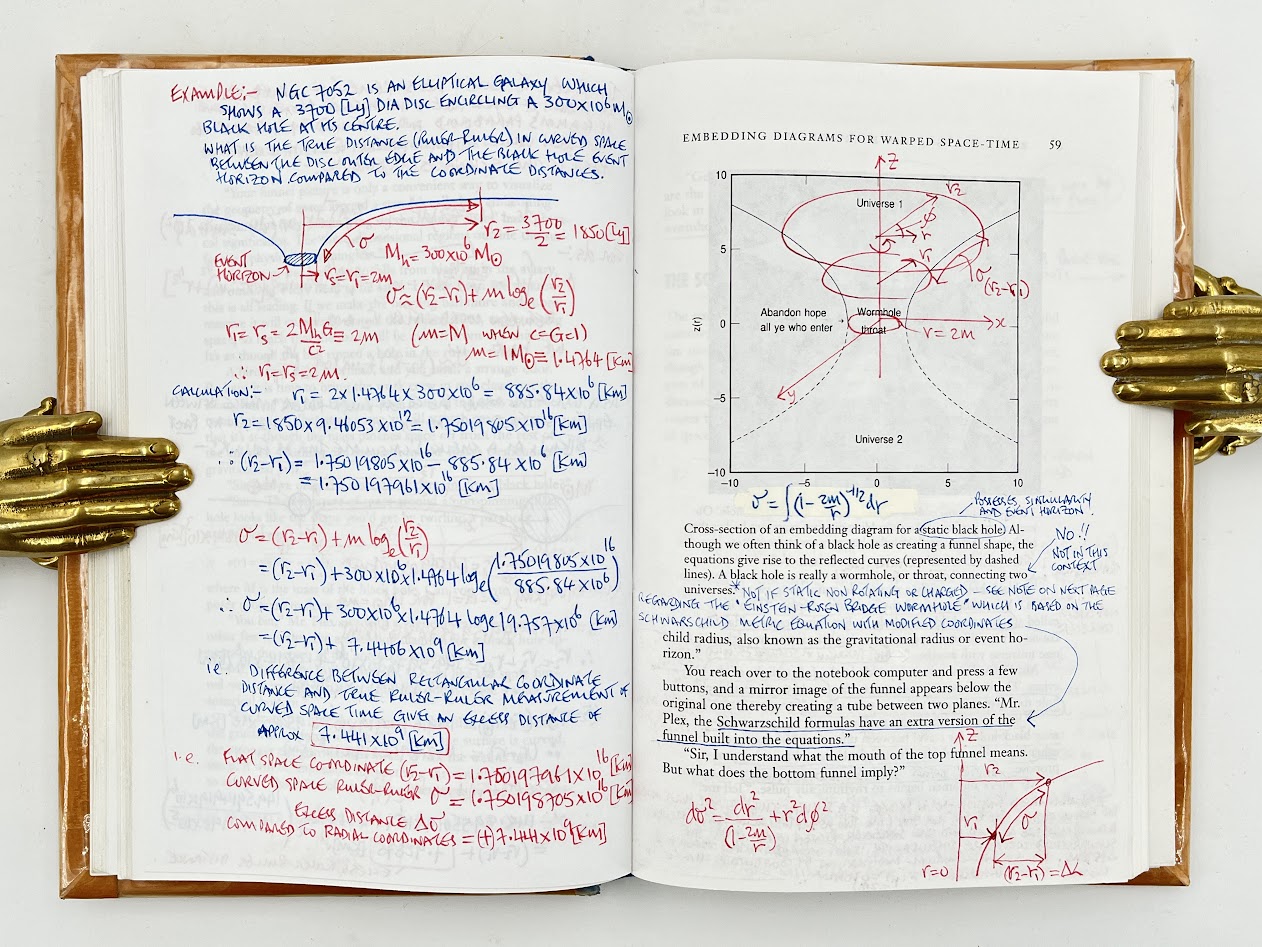 EXAMPLE:- NGC 7052 IS AN ELLIPTICAL GALAXY WHICH
SHOWS A 3700 [Ly] DIA DISC ENCIRCLING A 300×10⁶ M☉
BLACK HOLE AT ITS CENTRE.
WHAT IS THE TRUE DISTANCE (RULER-RULER) IN CURVED SPACE
BETWEEN THE DISC OUTER EDGE AND THE BLACK HOLE EVENT
HORIZON COMPARED TO THE COORDINATE DISTANCES.
r₂ = 3700/2 = 1850 [Ly]
σ
Mh = 300×10⁶ M☉
EVENT
HORIZON
rs = r₁ = 2m
σ ≈ (r₂-r₁) + m logₑ (r₂/r₁)
r₁ = rs = 2MhG/c² ≡ 2m (m=M WHEN c=G=1)
m = 1M☉ ≡ 1.4764 [km]
∴ r₁ = rs = 2m.
CALCULATION:- r₁ = 2×1.4764×300×10⁶ = 885.84×10⁶ [km]
r₂ = 1850×9.46053×10¹² = 1.75019805×10¹⁶ [km]
∴ (r₂-r₁) = 1.75019805×10¹⁶ - 885.84×10⁶ [km]
= 1.750197961×10¹⁶ [km]
σ = (r₂-r₁) + m logₑ (r₂/r₁)
= (r₂-r₁) + 300×10⁶×1.4764 logₑ (1.75019805×10¹⁶/885.84×10⁶)
∴ σ = (r₂-r₁) + 300×10⁶×1.4764 loge 19.757×10⁶ [km]
= (r₂-r₁) + 7.4406×10⁹ [km]
i.e. DIFFERENCE BETWEEN RECTANGULAR COORDINATE
DISTANCE AND TRUE RULER-RULER MEASUREMENT OF
CURVED SPACE TIME GIVE AN EXCESS DISTANCE OF
APPROX 7.441×10⁹ [km]
i.e. FLAT SPACE COORDINATE (r₂-r₁) = 1.750197961×10¹⁶ [km]
CURVED SPACE RULER-RULER σ = 1.750198705×10¹⁶ [km]
EXCESS DISTANCE Δσ
COMPARED TO RADIAL COORDINATES = (+) 7.441×10⁹ [km]
EMBEDDING DIAGRAMS FOR WARPED SPACE-TIME 59
z
10
Universe 1
r₂
φ
r
5
r₁
σ
(r₂-r₁)
z(r)
Abandon hope
all ye who enter
Wormhole
throat
0
x
r = 2m
−5
y
Universe 2
−10
−10 −5 0 5 10
σ = ∫(1-2m/r)^-1/2 dr
POSSESSES SINGULARITY
AND EVENT HORIZON.
Cross-section of an embedding diagram for a static black hole. Al-
though we often think of a black hole as creating a funnel shape, the
equations give rise to the reflected curves (represented by dashed
lines). A black hole is really a wormhole, or throat, connecting two
universes.*
NO!!
NOT IN THIS
CONTEXT
NOT IF STATIC NON ROTATING OR CHARGED - SEE NOTE ON NEXT PAGE
REGARDING THE "EINSTEIN-ROSEN BRIDGE WORMHOLE" WHICH IS BASED ON THE
SCHWARSCHILD METRIC EQUATION WITH MODIFIED COORDINATES
child radius, also known as the gravitational radius or event ho-
rizon.”
You reach over to the notebook computer and press a few
buttons, and a mirror image of the funnel appears below the
original one thereby creating a tube between two planes. “Mr.
Plex, the Schwarzschild formulas have an extra version of the
funnel built into the equations.”
“Sir, I understand what the mouth of the top funnel means.
But what does the bottom funnel imply?”
dσ² = dr²/(1-2m/r) + r²dφ²
z
r₂
r₁
σ
r=0
(r₂-r₁) = Δr